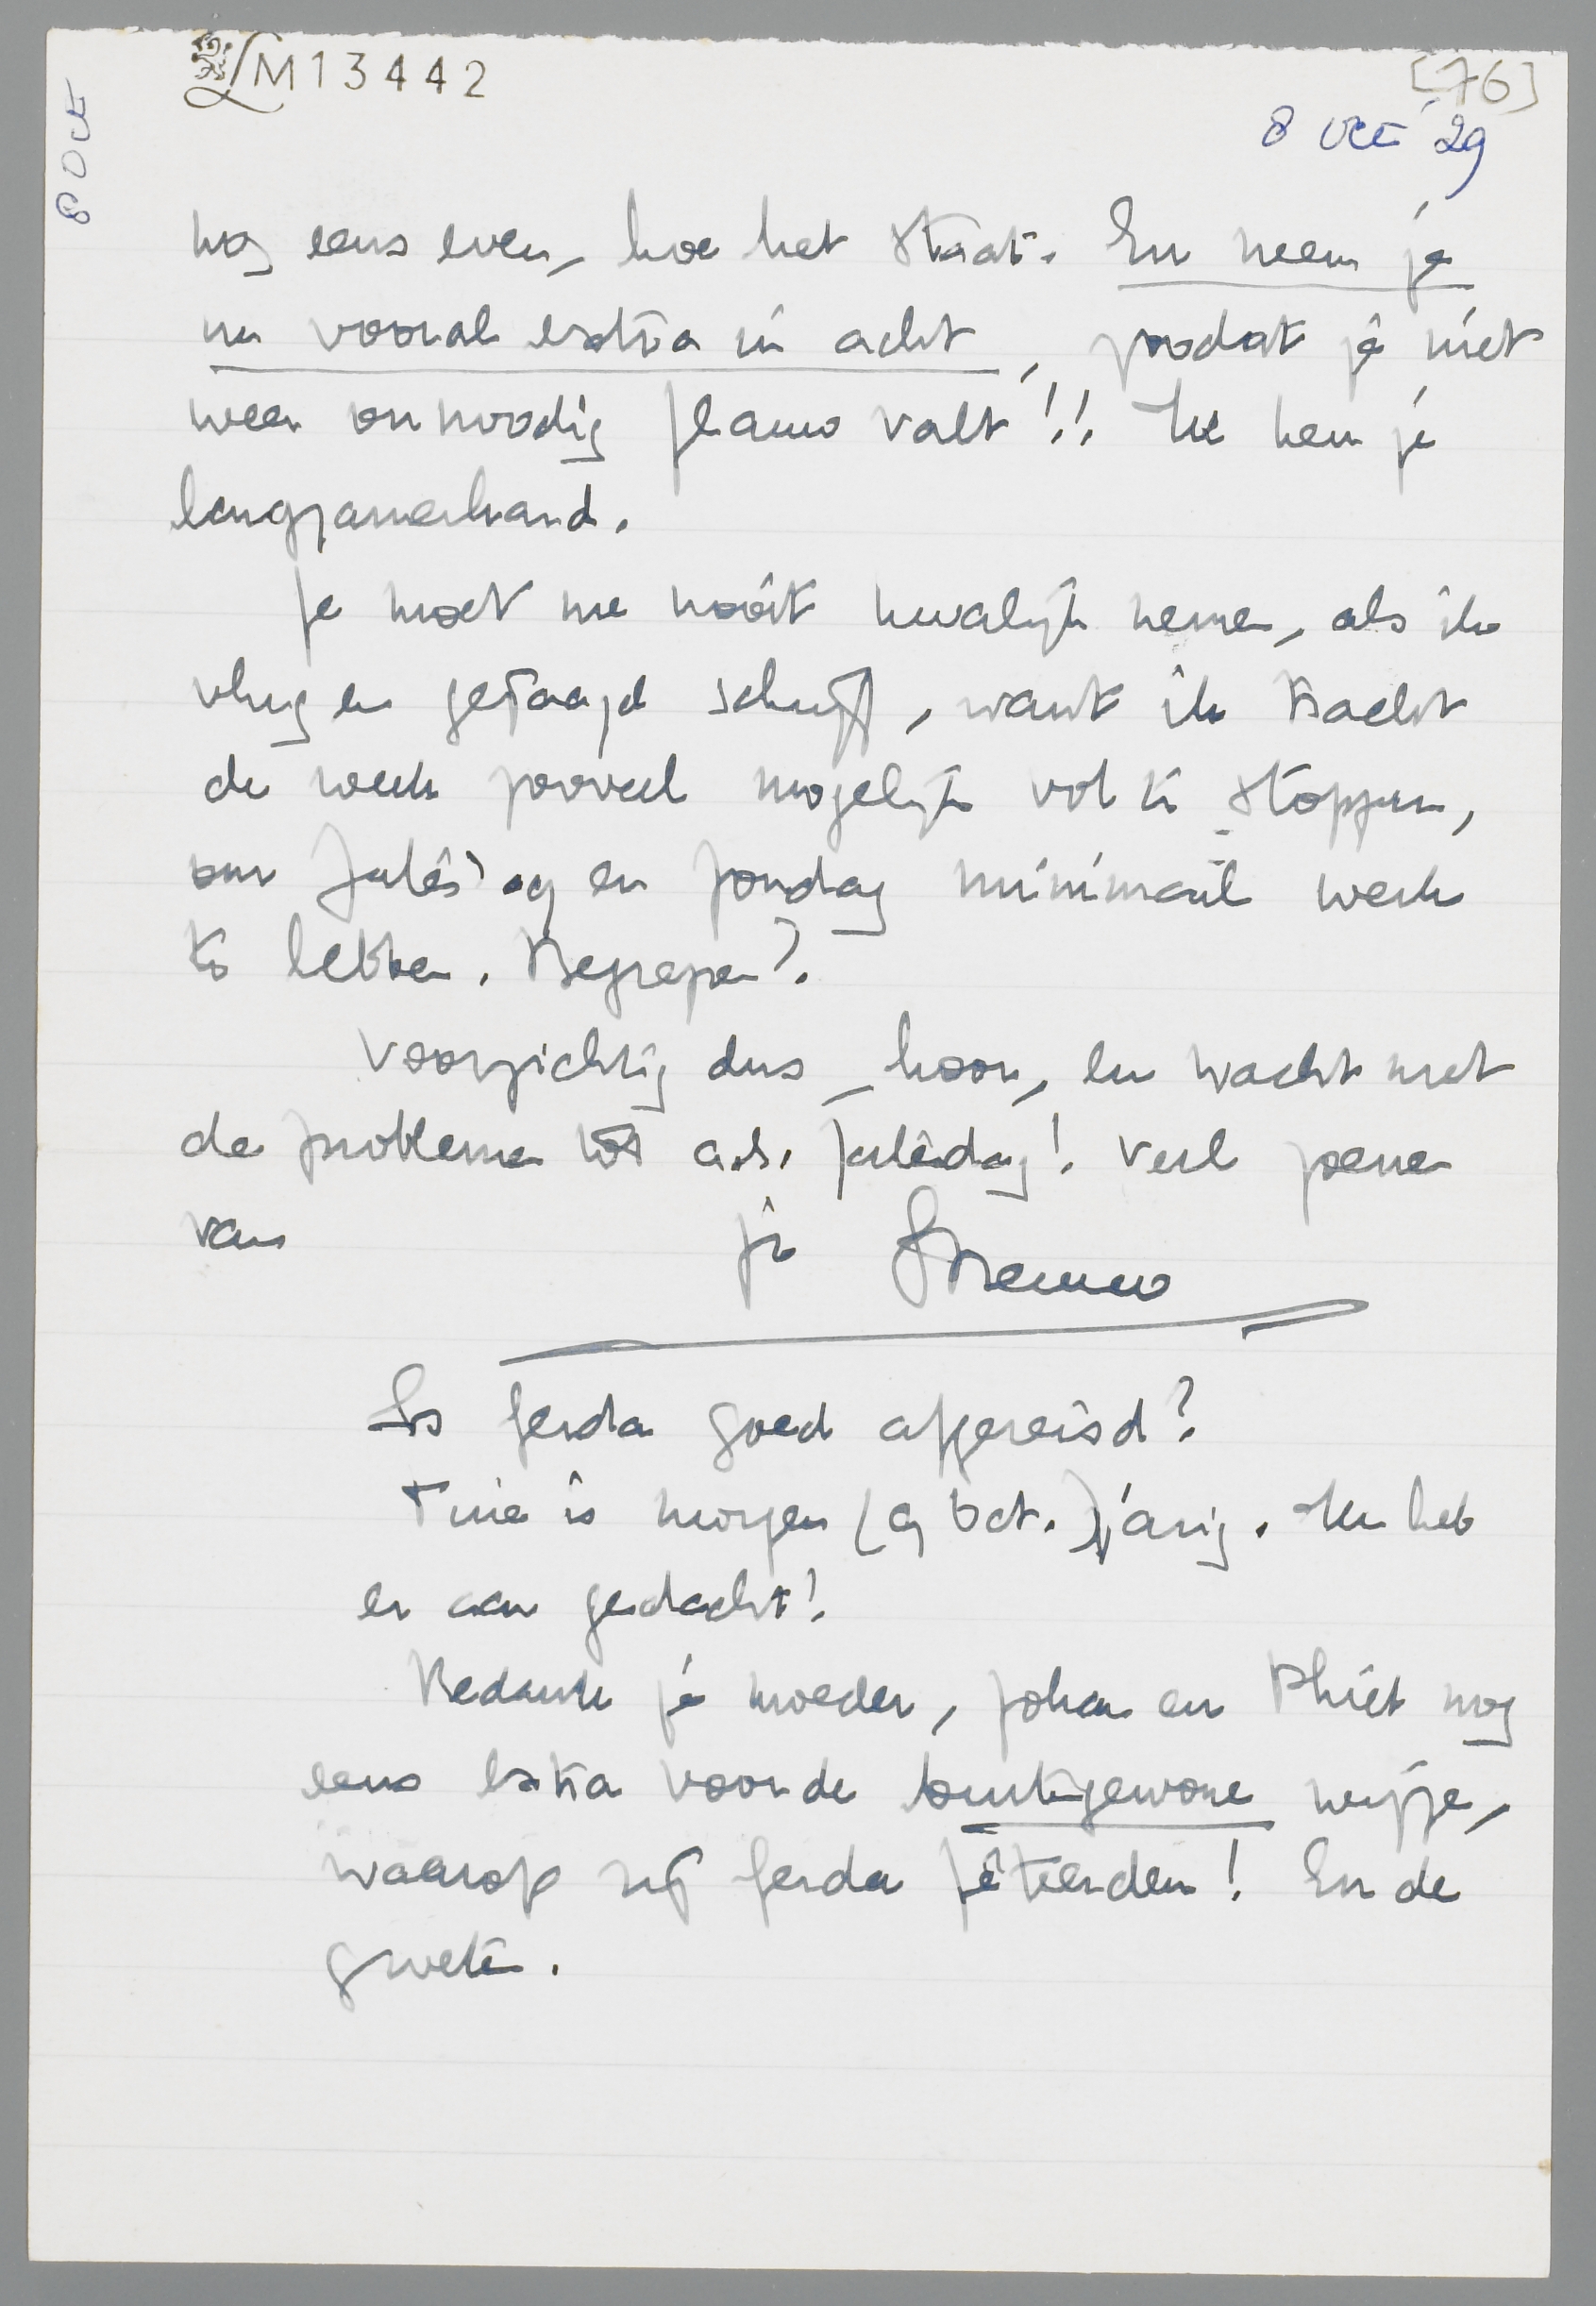 LM13442
[76]
8 Oct
8 Oct '29
nog eens even, hoe het staat. En neem je
nu vooral extra in acht, zoodat je niet
weer onnoodig flauw valt!! Ik ken je
langzamerhand.
Je moet me nooit kwalijk nemen, als ik
vlug en gejaagd schrijf, want ik tracht
de week zooveel mogelijk vol te stoppen,
om Zaterdag en Zondag minimaal werk
te hebben. Begrepen?
Voorzichtig dus, hoor, en wacht met
de problemen tot a.s. Zaterdag! Veel zoenen
van je Menno
Is Gerda goed afgereisd?
Tine is morgen (9 Oct.) jarig. Ik heb
er aan gedacht!
Bedank je moeder, Johan en Phiet nog
eens extra voor de buitengewone wijze,
waarop zij Gerda fêteerden! En de
groeten.